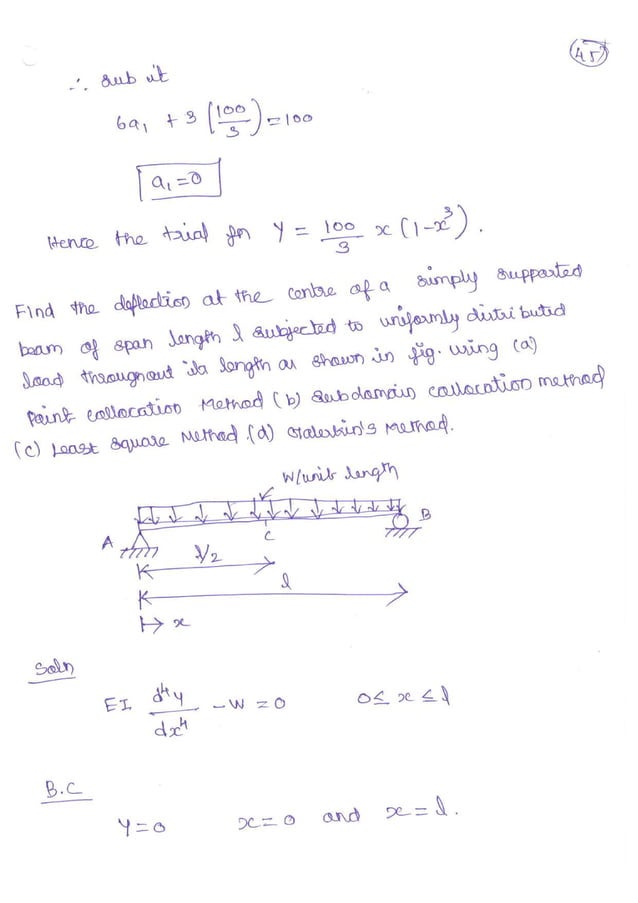 45
∴ sub it
6a₁ + 3 (100/3) = 100
a₁ = 0
Hence the trial fn Y = 100/3 x (1-x³).
Find the deflection at the centre of a simply supported
beam of span length l subjected to uniformly distributed
load throughout its length as shown in fig. using (a)
Point collocation Method (b) Subdomain collocation method
(c) Least square Method. (d) Galerkin's Method.
W/unit length
A
B
C
l/2
l
x
Soln
EI d⁴y/dx⁴ - W = 0 0 ≤ x ≤ l
B.C
Y = 0 x = 0 and x = l.